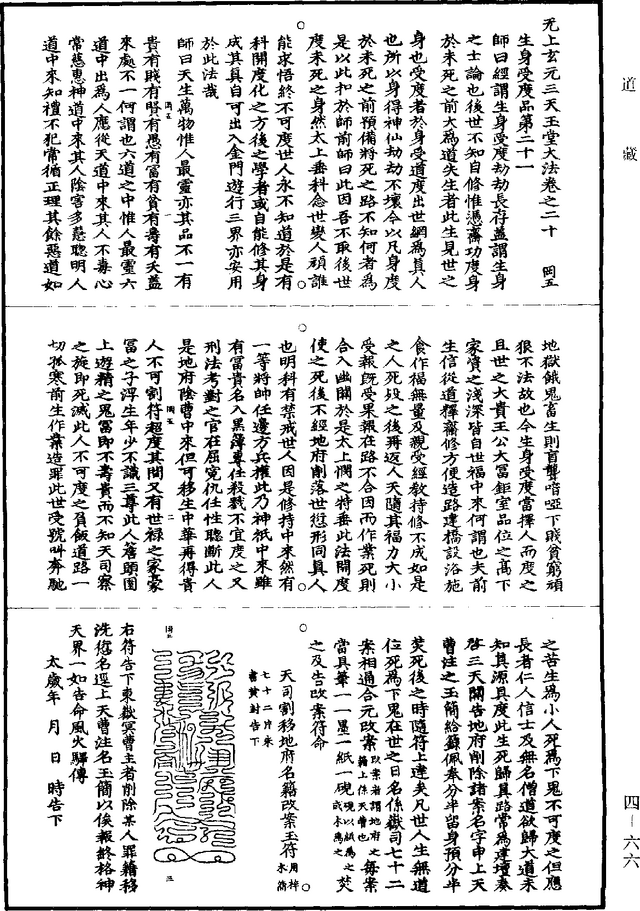 道藏
无上玄元三天玉堂大法卷之二十 岡五
生身受度品第二十一
師曰經謂生身受度劫劫長存蓋謂生身
之士論也後世不知自修惟憑齋功度身
於未死之前大為道失生者此生見世之
身也受度者於身受道度出世網為真人
也所以身得神仙劫劫不壞令以凡身度
於未死之前預備將死之路不知何者為
是以此扣於師前師曰此因吾不取後世
度未死之身然太上垂科念世變人頑誰
能求悟終不可度世人永不知道於是有
科開度化之方後之學者或自能修其身
成其真自可出入金門遊行三界亦安用
於此法哉
師曰天生萬物惟人最靈亦其品不一有
貴有賤有賢有愚有富有貧有壽有夭蓋
來處不一何謂也六道之中惟人最靈六
道中出為人應從天道中來其人不毒心
常慈惠神道中來其人陰害多慧聰明人
道中來知禮不犯常循正理其餘惡道如
地獄餓鬼畜生則盲聾喑啞下賤貧窮頑
狠不法故也今生身受度當擇人而度之
且世之大貴王公大富鉅室品位之高下
家資之淺深皆自世福中來何謂也夫前
生信從道釋齋修方便造路建橋設浴施
食作福無量及親受經教持修不成如是
之人死歿之後再返人天隨其福力大小
受報既受果報在路不合因而作業死則
合入幽關於是太上憫之特垂此法開度
使之死後不經地府削落世愆形同真人
也明科有禁戒世人因是修持中來然有
一等將帥任邊方兵權此乃神祇中來雖
有富貴名入黑簿專任殺戮不宜度之又
刑法考對之官在屈寃仇任性聽斷此人
是地府陰曹中來但可移生中華再得貴
人不可劃符超度其間又有世祿之家豪
富之子浮生年少不識三尊此人蒼頭圊
上遊精之鬼冨即不壽貴而不知天司察
之旋即死滅此人不可度之貧飯道路一
切孤寒前生作業造罪此世受號叫奔馳
之苦生為小人死為下鬼不可度之但應
長者仁人信士及無名僧道欲歸大道未
知其源真度此生死歸真路常為建壇奏
啓三天關告地府削除諸案名字申上天
曹注之玉簡給籙佩奏分半留身預分半
焚死後之時隨符上達矣凡世人生無道
位死為下鬼在世之日名係嶽司七十二
案相通合元改案改案者謂地府之籍上係天曹也每案
當具筆一一墨一紙一硯硯以紙為之或木為之焚
之及告改案符命
天司劃移地府名籍改案玉符用梓木簡
七十二片朱書黃封告下
右符告下東嶽冥曹主者削除某人罪籍移
洗愆名逕上天曹注名玉簡以俟報終格神
天界一如告命風火驛傳
太歲年 月 日 時告下
四—六六